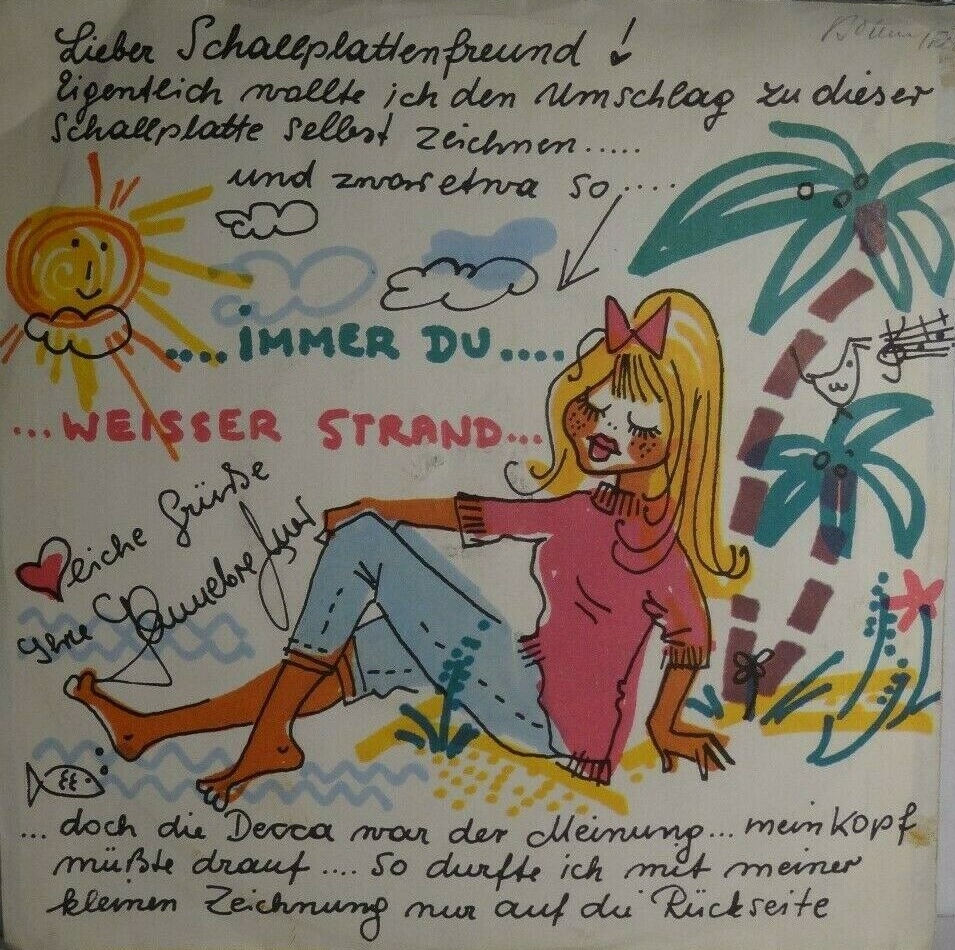 Lieber Schallplattenfreund !
Eigentlich wollte ich den Umschlag zu dieser
Schallplatte selbst zeichnen.....
und zwar etwa so....
....IMMER DU....
...WEISSER STRAND...
eiche Grüße
... doch die Decca war der Meinung... mein Kopf
müßte drauf.... so durfte ich mit meiner
kleinen Zeichnung nur auf die Rückseite